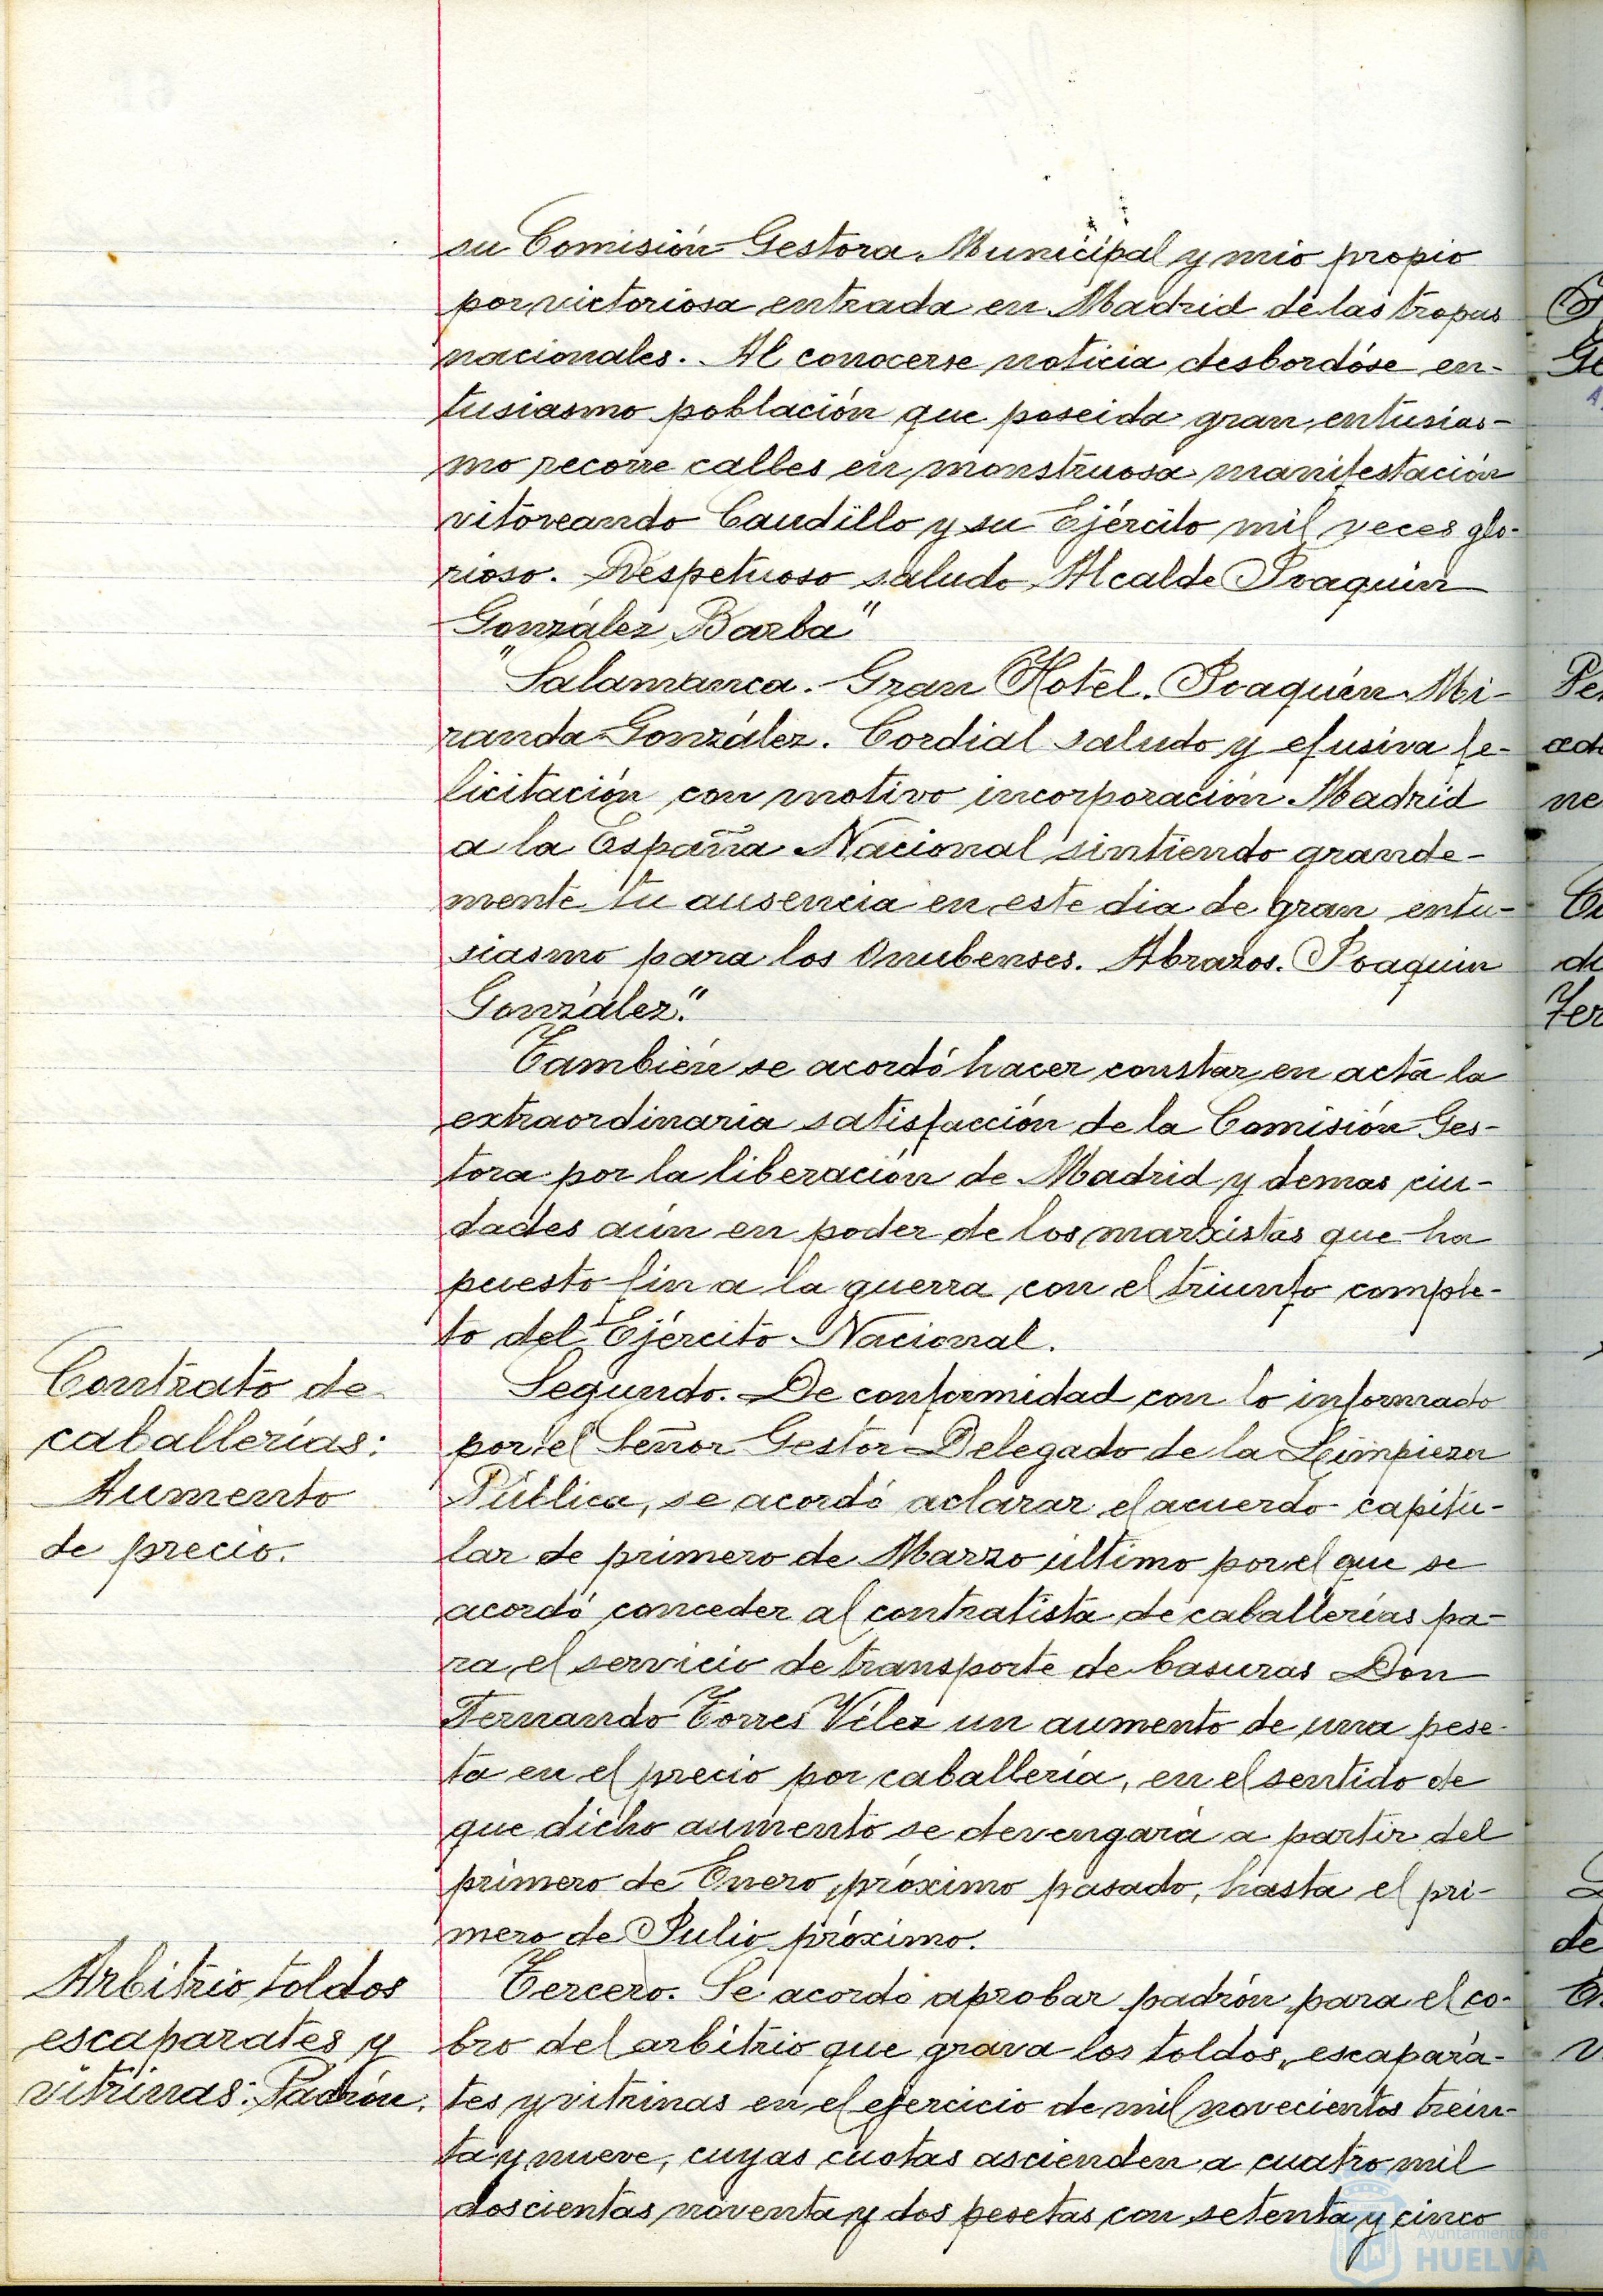 su Comisión Gestora Municipal y mio propio
por victoriosa entrada en Madrid de las tropas
nacionales. Al conocerse noticia desbordóse en-
tusiasmo población que poseida gran entusias-
mo recorre calles en monstruosa manifestación
vitoreando Caudillo y su Ejército mil veces glo-
rioso. Respetuoso saludo Alcalde Joaquin
González Barba"
"Salamanca.- Gran Hotel. Joaquín Mi-
randa González. Cordial saludo y efusiva fe-
licitación con motivo incorporación Madrid
a la España Nacional sintiendo grande-
mente tu ausencia en este dia de gran entu-
siasmo para los Onubenses. Abrazos. Joaquin
González."
También se acordó hacer constar en acta la
extraordinaria satisfacción de la Comisión Ges-
tora por la liberación de Madrid y demas ciu-
dades aún en poder de los marxistas que ha
puesto fin a la guerra con el triunfo comple-
to del Ejército Nacional.
Contrato de
caballerías:
Aumento
de precio.
Segundo. De conformidad con lo informado
por el Señor Gestor Delegado de la Limpieza
Pública, se acordó aclarar el acuerdo capitu-
lar de primero de Marzo último por el que se
acordó conceder al contratista de caballerías pa-
ra el servicio de transporte de basuras Don
Fernando Torres Vélez un aumento de una pese-
ta en el precio por caballería, en el sentido de
que dicho aumento se devengará a partir del
primero de Enero próximo pasado, hasta el pri-
mero de Julio próximo.
Arbitrio toldos
escaparates y
vitrinas: Padrón.
Tercero. Se acordó aprobar padrón para el co-
bro del arbitrio que grava los toldos, escapara-
tes y vitrinas en el ejercicio de mil novecientos trein-
ta y nueve, cuyas cuotas ascienden a cuatro mil
doscientas noventa y dos pesetas con setenta y cinco
Ayuntamiento de
HUELVA